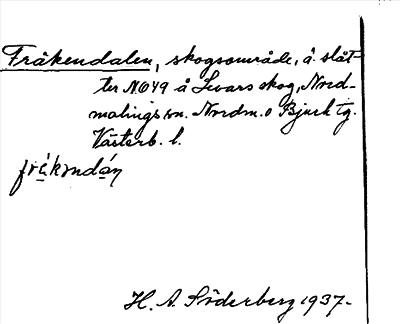 Fräkendalen, skogsområde, å slåt-
ter N049 å Levars skog, Nord-
malings sn. Nordm. o Bjurh tg.
Västerb. l.
frékəndán
H. A. Söderberg 1937-